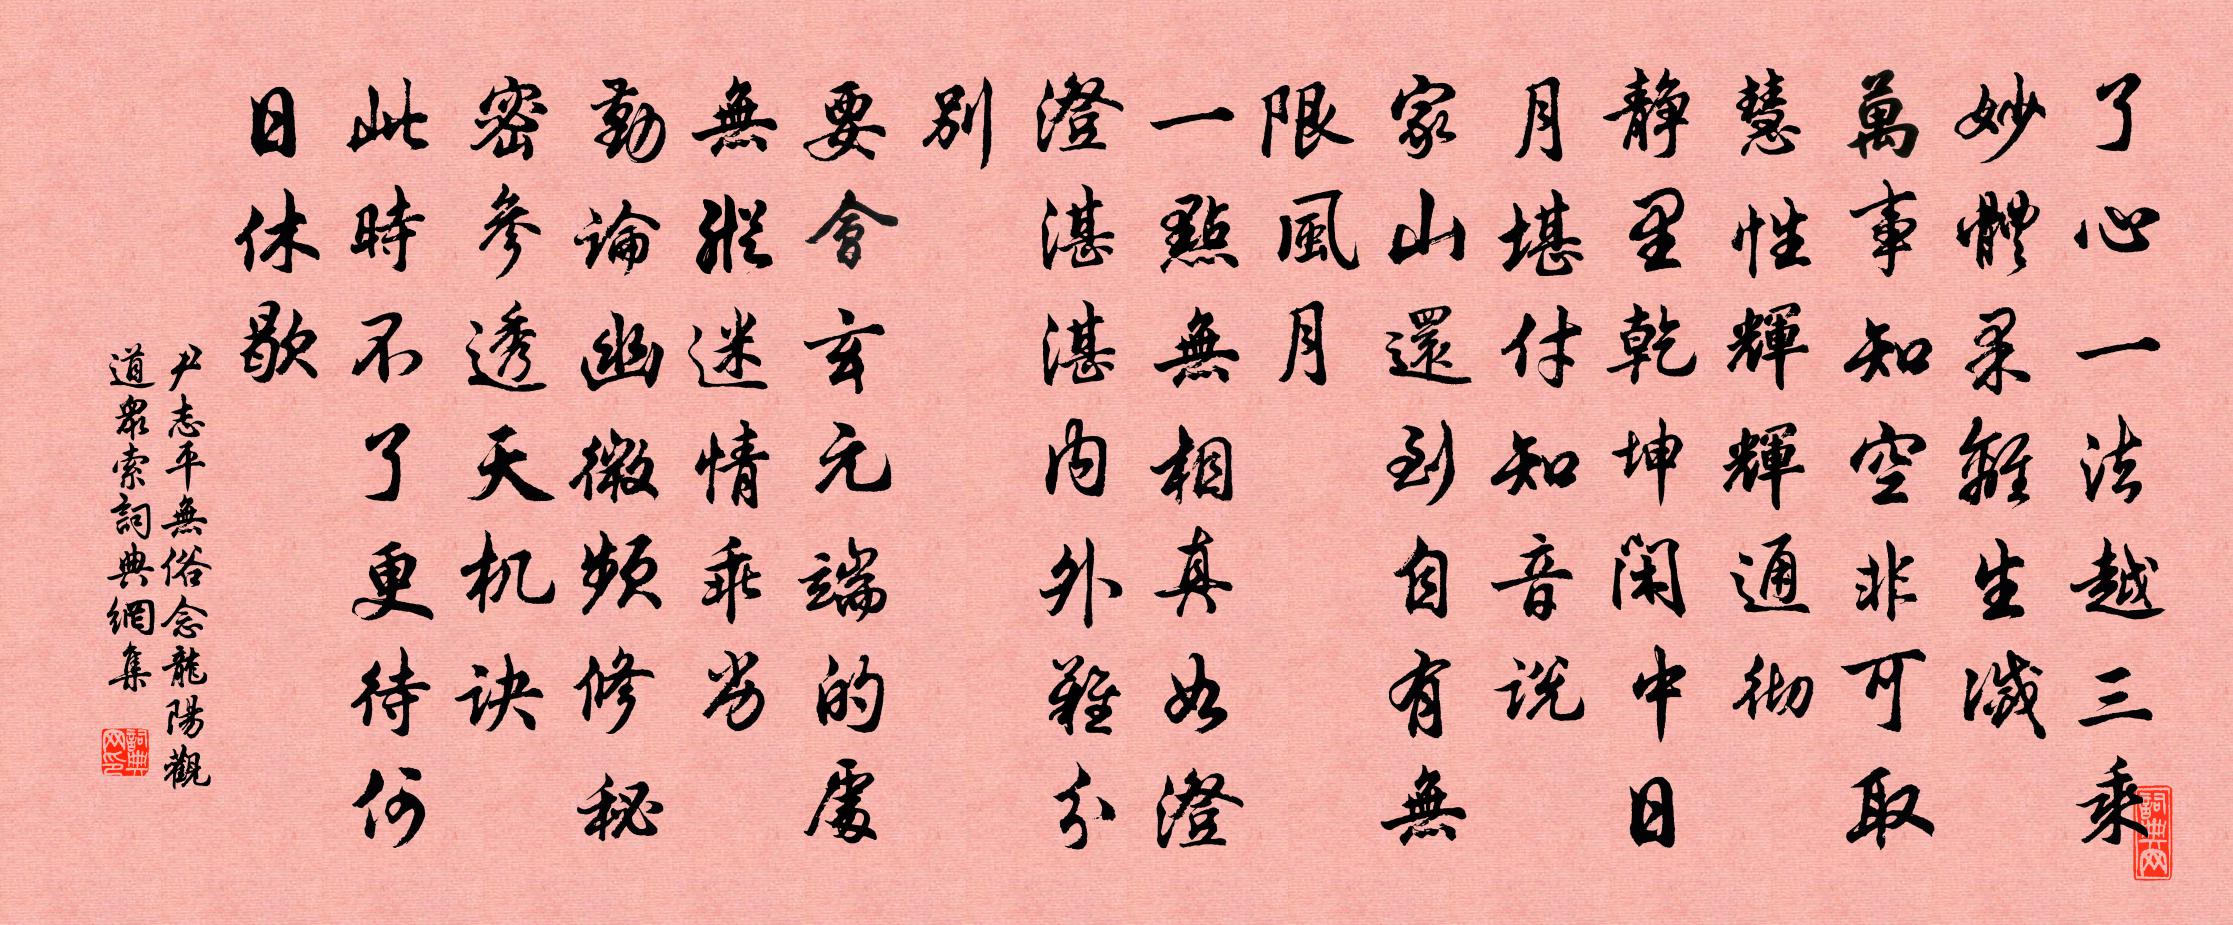 了心一法越三乘
妙體柔難生滅
萬事知空非可取
慧性輝輝通彻
静里乾坤閑中日
月堪付知音说
家山還到自有無
限風月
一點無相真如澄
澄湛湛内外難分
别
要會玄元端的處
無縱迷情乖劣
勤論幽微頻修秘
密參透天机诀
此時不了更待何
日休歇
尹志平無俗念龍陽觀
道眾索詞典網集
詞典网印
詞典网